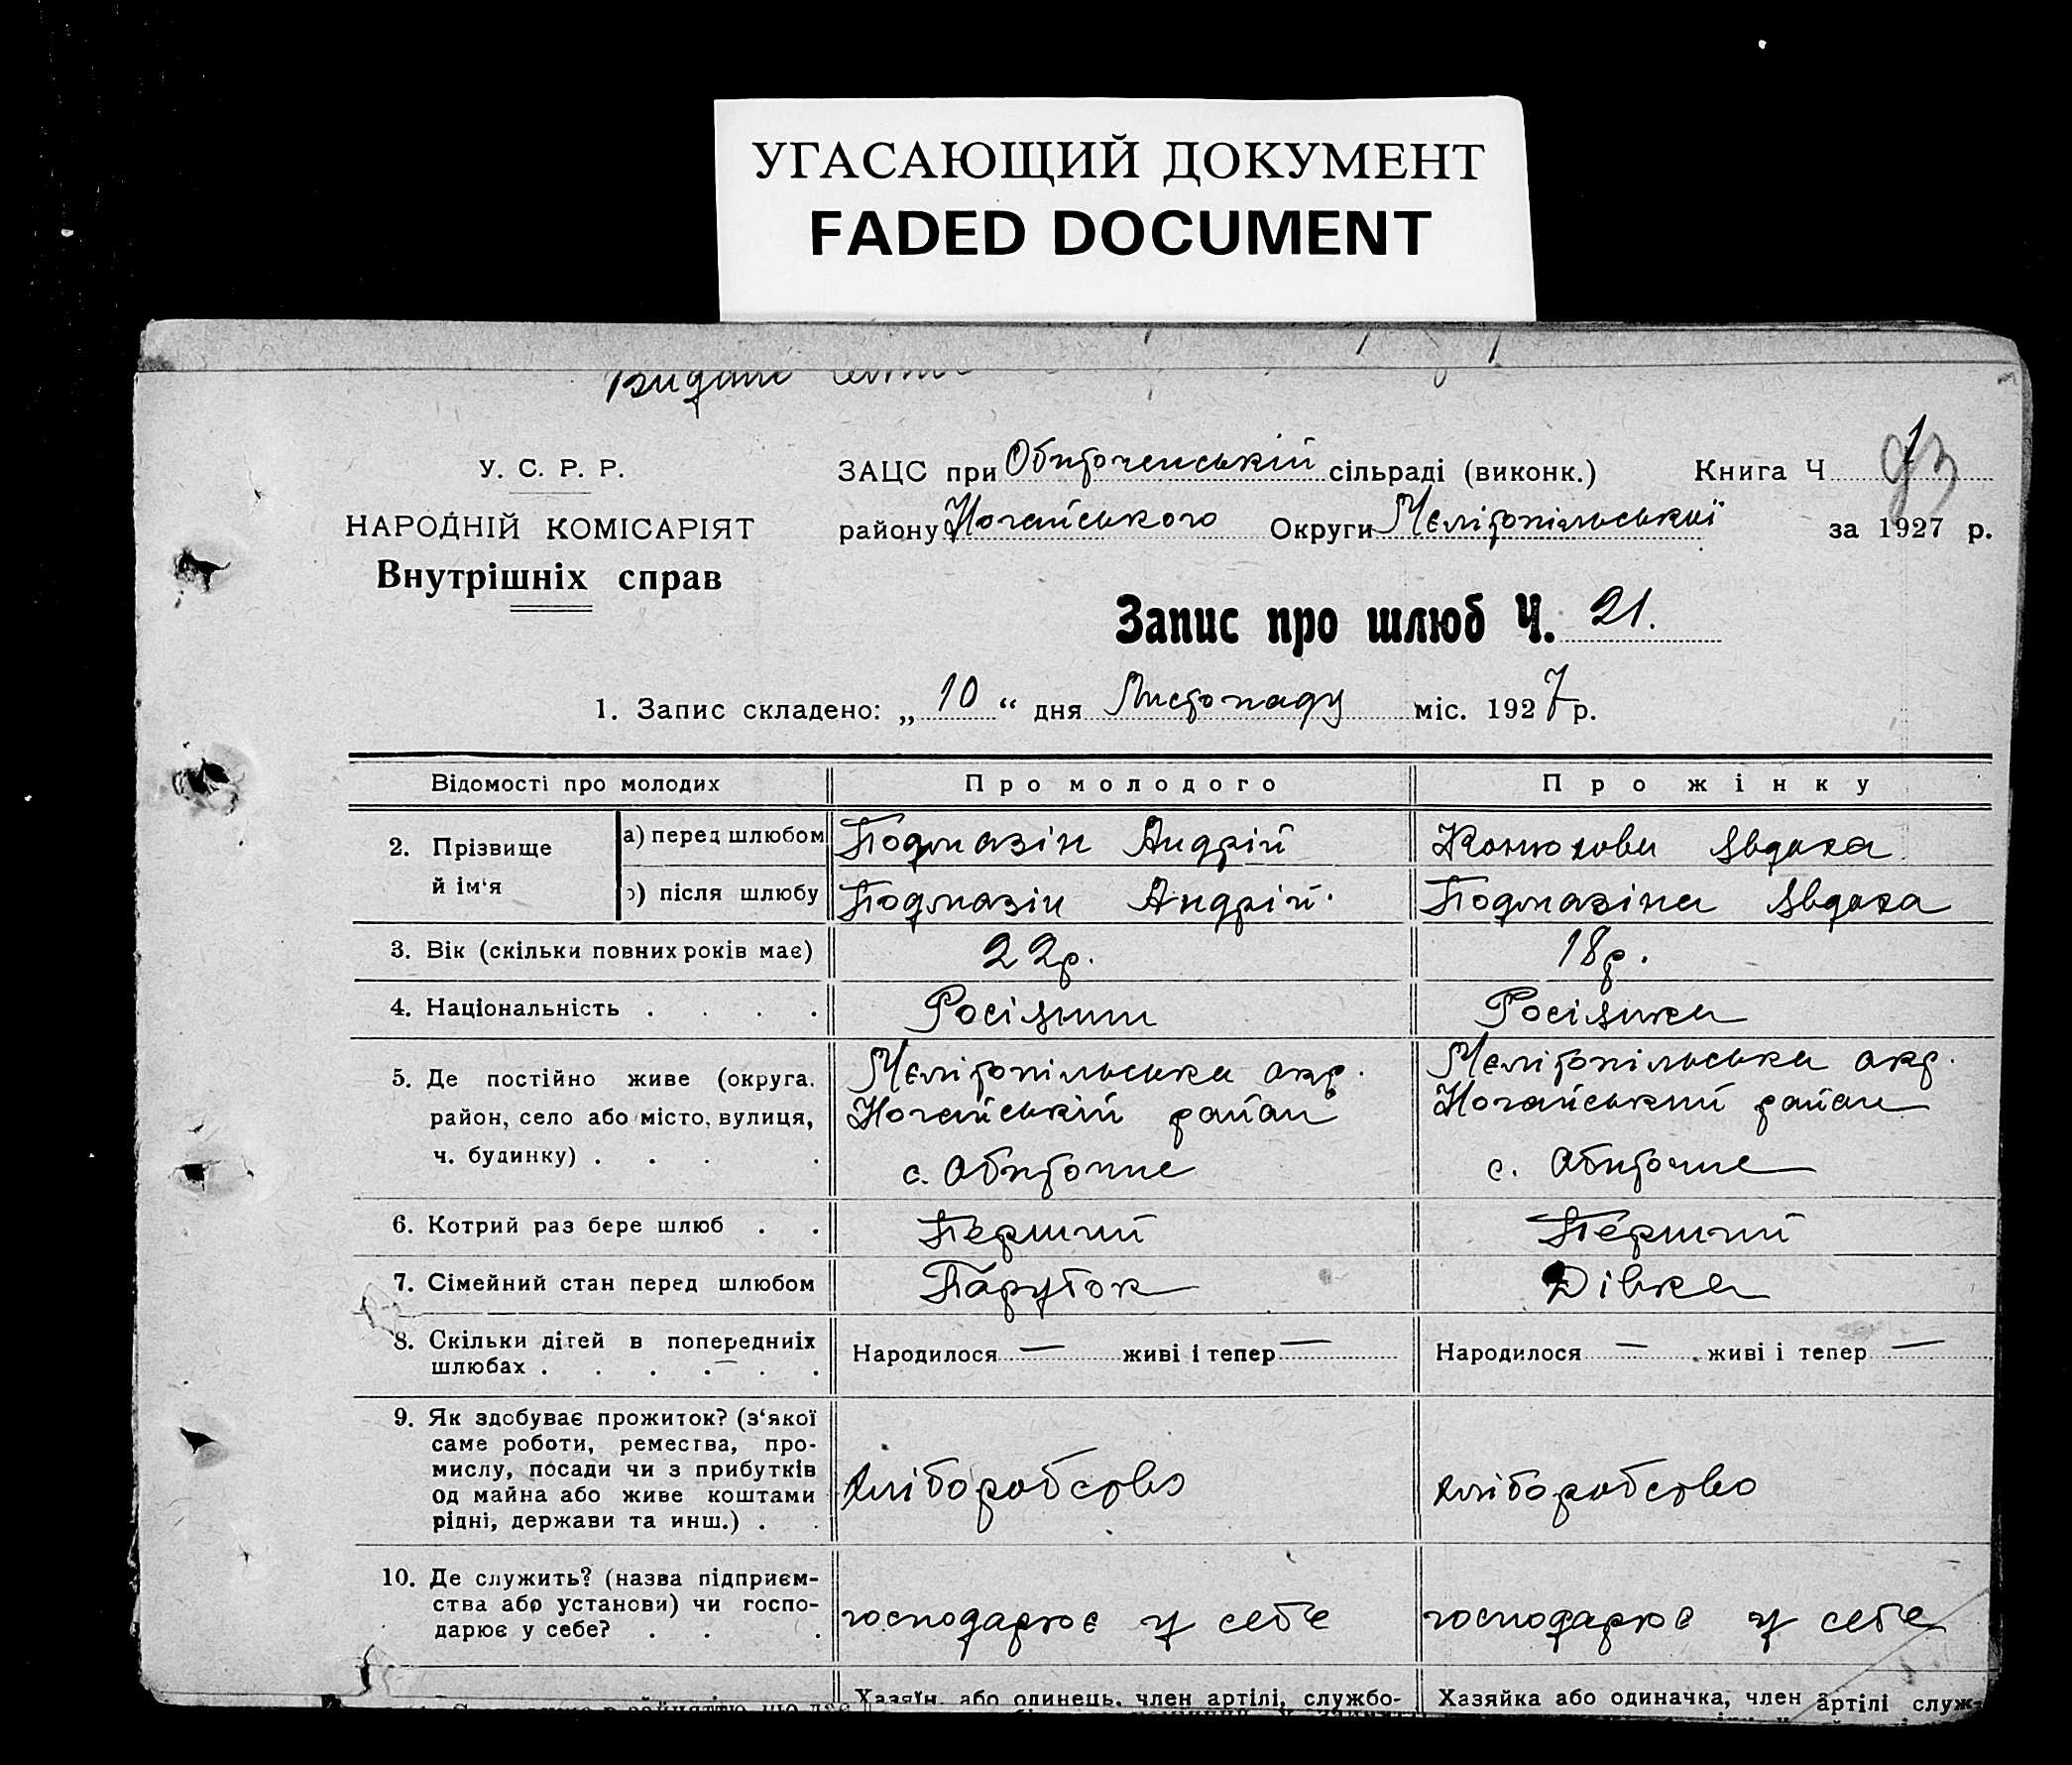 УГАСАЮЩИЙ ДОКУМЕНТ
FADED DOCUMENT
Видані
У. С. Р. Р.
НАРОДНІЙ КОМІСАРІЯТ
Внутрішніх справ
ЗАЦС при Обиточенській сільраді (виконк.) Книга Ч 1
району Ногайського Округи Мелітопільської за 1927 р.
Запис про шлюб Ч. 21.
1. Запис складено: „ 10 “ дня Листопаду міс. 1927 р.
Відомості про молодих Про молодого Про жінку
2. Прізвище й ім‘я
а) перед шлюбом Подмазін Андрій Конюхова Явдоха
б) після шлюбу Подмазін Андрій Подмазіна Явдоха
3. Вік (скільки повних років має) 22р. 18р.
4. Національність . . . . Росіянин Росіянка
5. Де постійно живе (округа, Мелітопільська окр. Мелітопільська окр.
район, село або місто, вулиця, Ногайській район Ногайський район
ч. будинку) . . . . с. Обиточне с. Обиточне
6. Котрий раз бере шлюб . . Перший Перший
7. Сімейний стан перед шлюбом Парубок Дівка
8. Скільки дітей в попередніх
шлюбах . . . . . . Народилося — живі і тепер — Народилося — живі і тепер —
9. Як здобуває прожиток? (з‘якої
саме роботи, ремества, про-
мислу, посади чи з прибутків
од майна або живе коштами
рідні, держави та инш.) . . хліборобство хліборобство
10. Де служить? (назва підприєм-
ства або установи) чи госпо-
дарює у себе? . . . господарює у себе господарює у себе
Хазяїн, або одинець, член артілі, службо- Хазяйка або одиначка, член артілі служ-